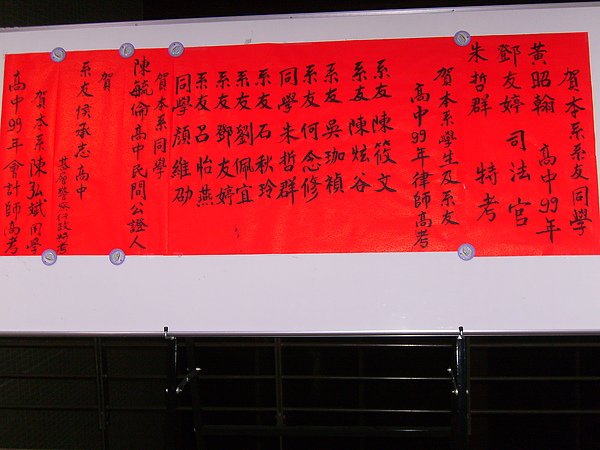 賀本系系友同學
黃昭翰 高中99年
鄧友婷 司法官
朱哲群 特考
賀本系學生及系友
高中99年律師高考
系友 陳筱文
系友 陳炫谷
系友 吳珈禎
系友 何念修
同學 朱哲群
系友 石秋玲
系友 劉佩宜
系友 鄧友婷
系友 呂怡燕
同學 顏維劭
賀本系同學
陳毓倫高中民間公證人
賀
系友侯承志高中
基層警察行政特考
賀本系陳弘斌同學
高中99年會計師高考